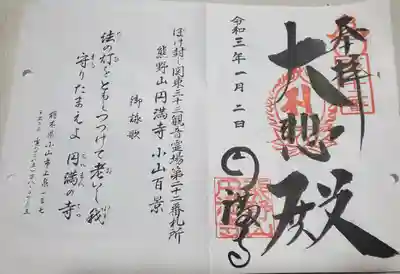 奉拝
大悲殿
円満寺
令和三年一月二日
ぼけ封じ関東三十三観音霊場第二十二番札所
熊野山 円満寺 小山百景
御詠歌
法の灯をともしつづけて老いし我
守りたまえよ 円満の寺
栃木県小山市上泉